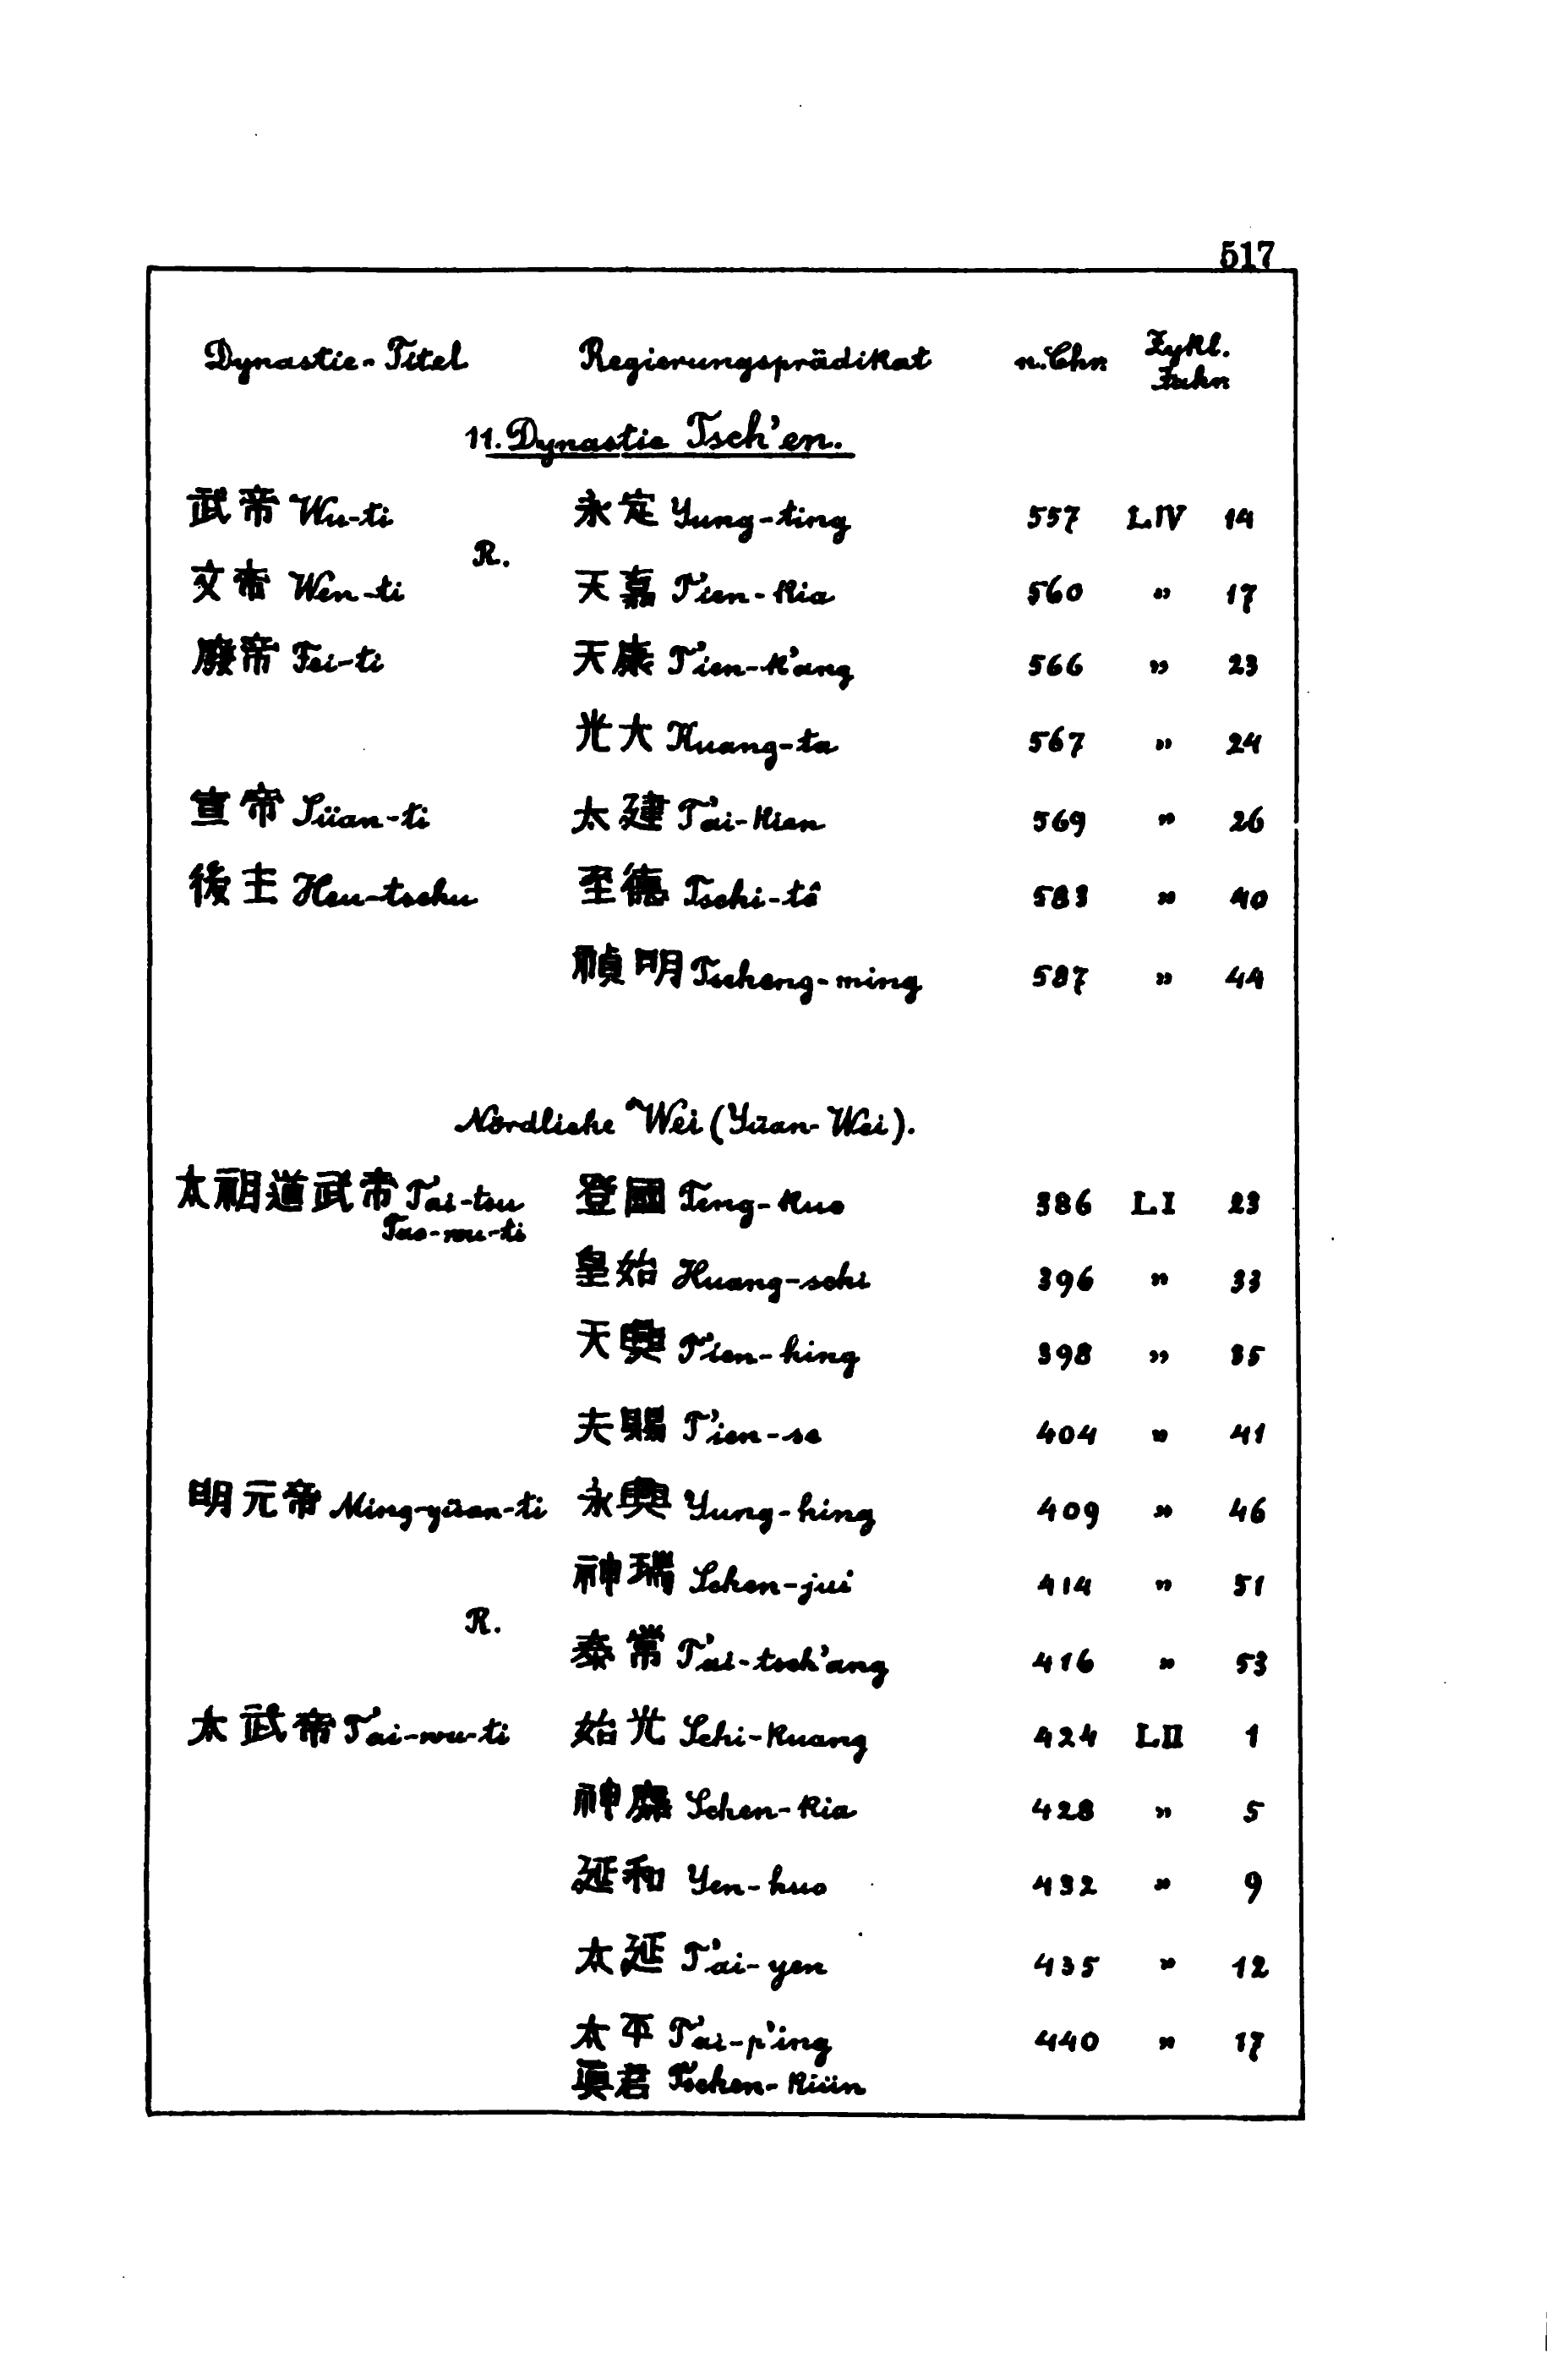 517
Dynastie-Titel Regierungsprädikat n.Chr. Zykl.
Jahr
11. Dynastie Tsch'en.
武帝 Wu-ti 永定 Yung-ting 557 LIV 14
R.
文帝 Wen-ti 天嘉 T'ien-kia 560 " 17
廢帝 Fei-ti 天康 T'ien-k'ang 566 " 23
光大 Kuang-ta 567 " 24
宣帝 Süan-ti 太建 T'ai-kien 569 " 26
後主 Heu-tschu 至德 Tschi-tê 583 " 40
禎明 Tscheng-ming 587 " 44
Nördliche Wei (Yüan-Wei).
太祖道武帝 T'ai-tsu 登國 Teng-kuo 386 LI 23
Tao-wu-ti
皇始 Huang-schi 396 " 33
天興 T'ien-hing 398 " 35
天賜 T'ien-se 404 " 41
明元帝 Ming-yüan-ti 永興 Yung-hing 409 " 46
神瑞 Schen-jui 414 " 51
R.
泰常 T'ai-tsch'ang 416 " 53
太武帝 T'ai-wu-ti 始光 Schi-kuang 424 LII 1
神䴥 Schen-kia 428 " 5
延和 Yen-huo 432 " 9
太延 T'ai-yen 435 " 12
太平 T'ai-p'ing 440 " 17
眞君 Tschen-kiün